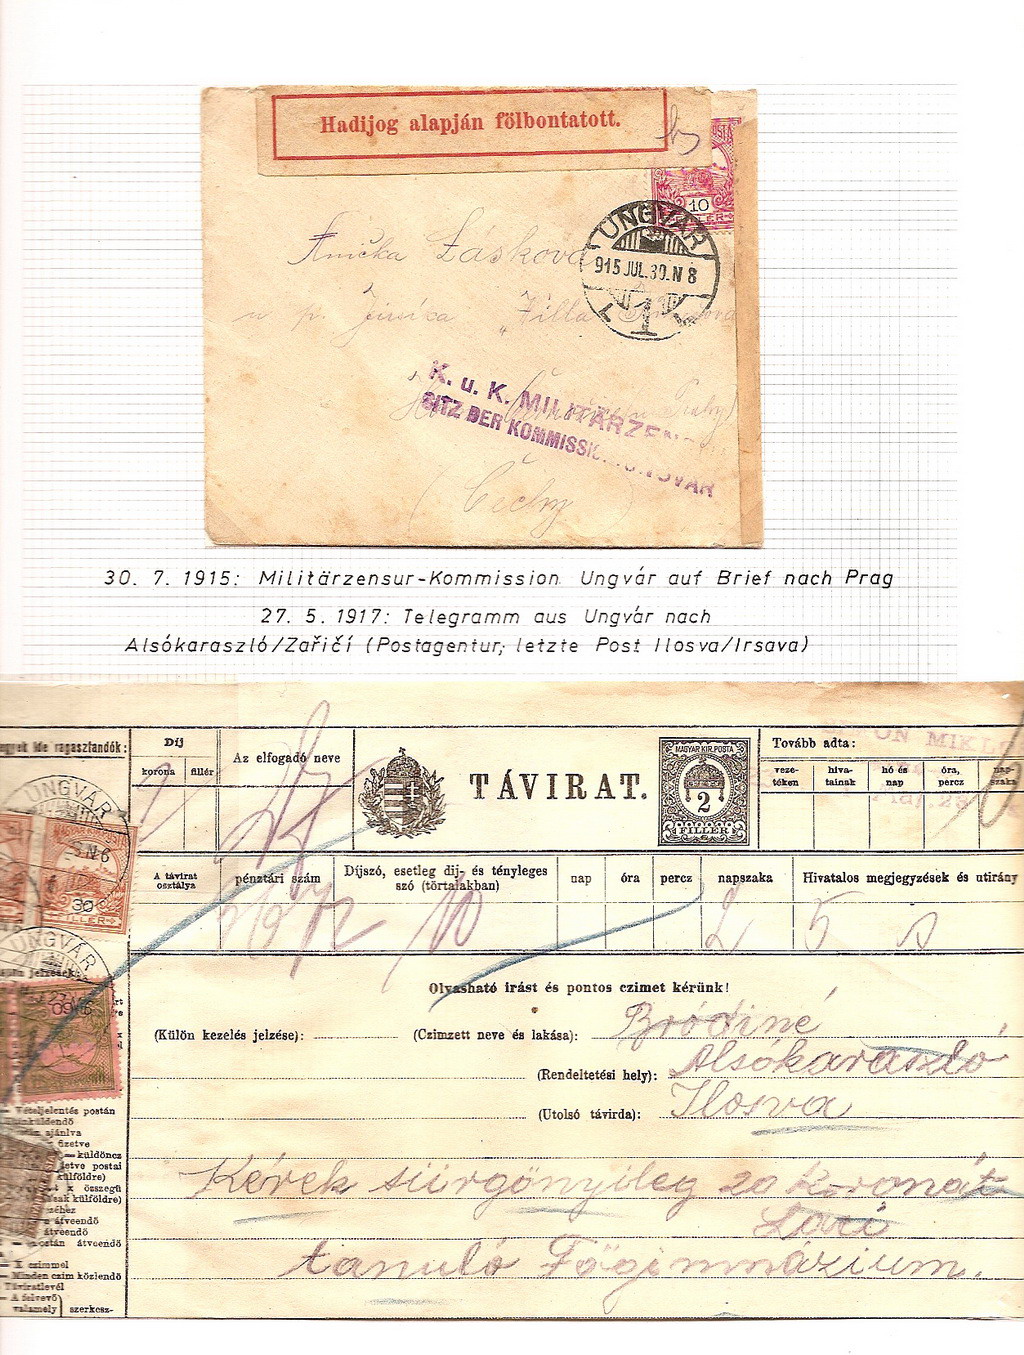 Hadijog alapján fölbontatott.
10
UNGVÁR
915 JUL.30.N 8
Anička Lásková
u p. "Villa
K. u. K. MILITÄRZEN
SITZ DER KOMMISSIO UNGVÁR
(Čechy)
30. 7. 1915: Militärzensur-Kommission Ungvár auf Brief nach Prag
27. 5. 1917: Telegramm aus Ungvár nach
Alsókaraszló/Zařičí (Postagentur; letzte Post Ilosva/Irsava)
egyek ide ragasztandók:
Díj
korona fillér
Az elfogadó neve
TÁVIRAT.
MAGYAR KIR. POSTA
2
FILLÉR
Tovább adta:
veze-
téken
hiva-
talnak
hó és
nap
óra,
percz
nap-
szaka
UNGVÁR
30
FILLÉR
A távirat
osztálya
pénztári szám
Díjszó, esetleg díj- és tényleges
szó (törtalakban)
nap
óra
percz
napszaka
Hivatalos megjegyzések és utirány
UNGVÁR
Olvasható irást és pontos czimet kérünk!
(Külön kezelés jelzése):
(Czimzett neve és lakása): Bródiné
(Rendeltetési hely): Alsókaraszló
(Utolsó távirda): Ilosva
Kérek sürgönyileg 20 Koronát
Lori
tanuló Főgimnázium.
— Vételjelentés postán
ajánlva
fizetve
— küldöncz
postai
külföldre)
x összegű
csak külföldre)
átveendő
átveendő
postán átveendő
— X czimmel
— Minden czim közlendő
Táviratlevél
— A felvevő
valamely szerkesz-